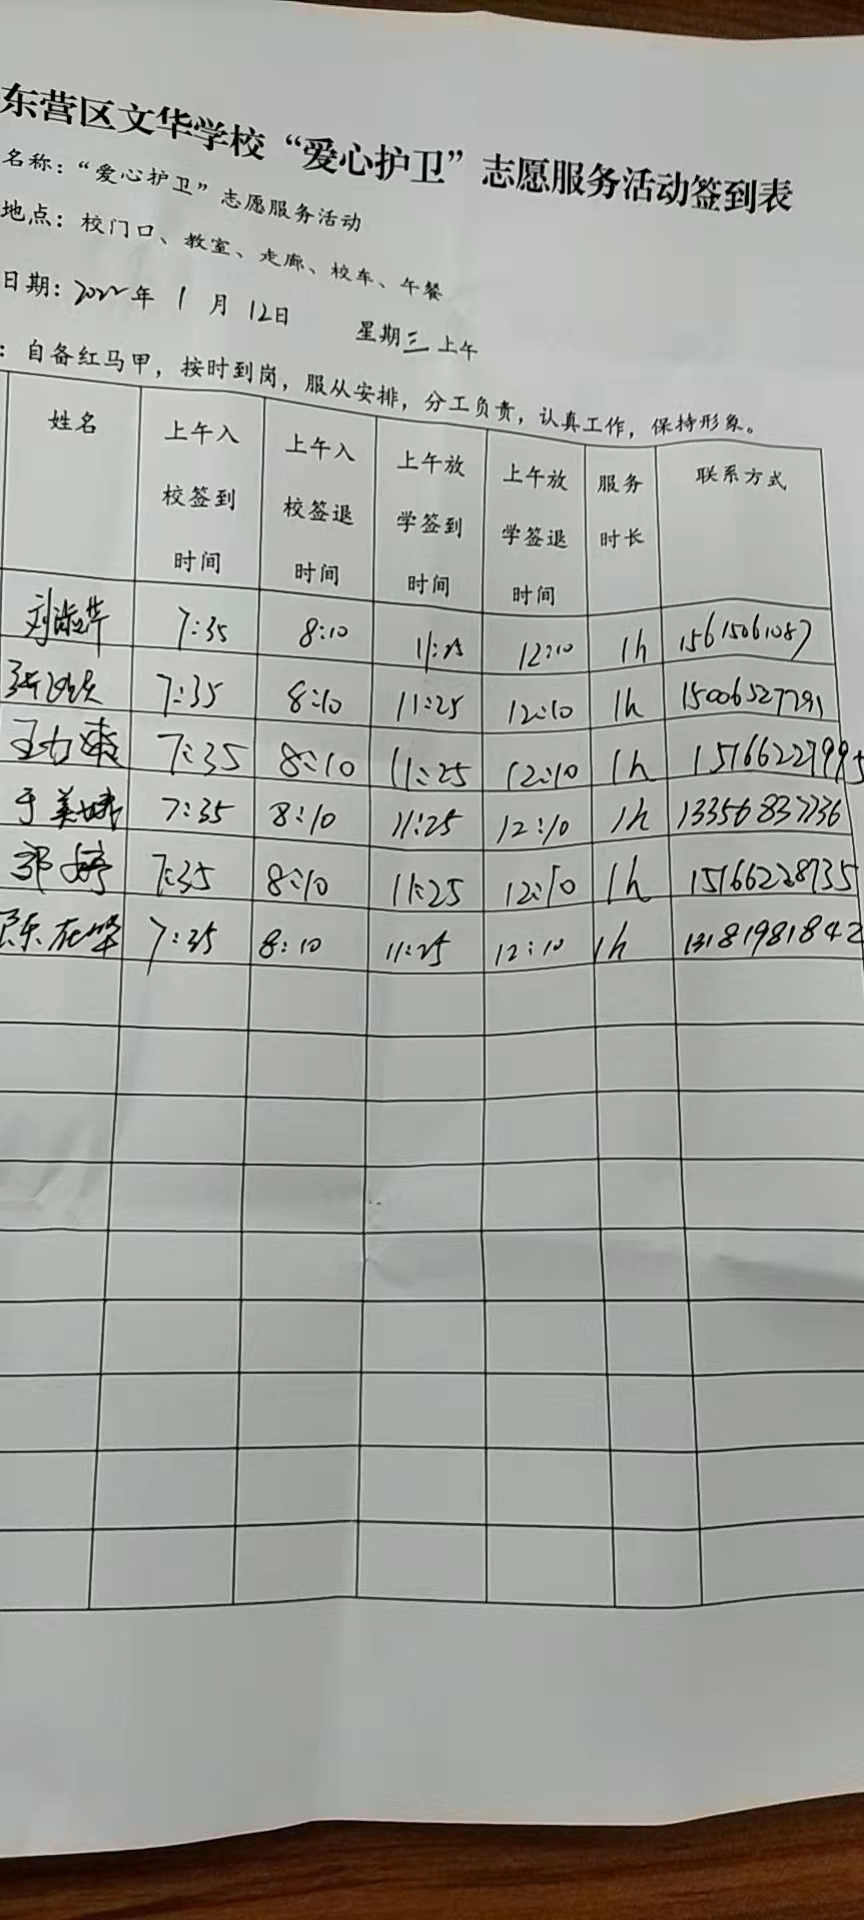 东营区文华学校“爱心护卫”志愿服务活动签到表
名称：“爱心护卫”志愿服务活动
地点：校门口、教室、走廊、校车、午餐
日期：2022年 1 月 12日 星期三上午
：自备红马甲，按时到岗，服从安排，分工负责，认真工作，保持形象。
姓名 上午入校签到时间 上午入校签退时间 上午放学签到时间 上午放学签退时间 服务时长 联系方式
刘淑华 7:35 8:10 11:25 12:10 1h 15615061087
7:35 8:10 11:25 12:10 1h 15006527791
王 7:35 8:10 11:25 12:10 1h 15166227995
于美 7:35 8:10 11:25 12:10 1h 13356837736
郭婷 7:35 8:10 11:25 12:10 1h 15166228735
陈在华 7:35 8:10 11:25 12:10 1h 13181981842